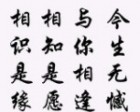 相识是缘
相知是愿
与你相逢
今生无憾